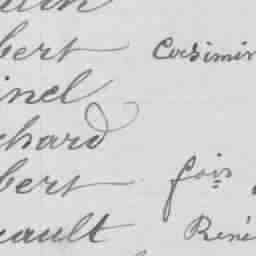 bert Casimir
inel
chard
bert fois
cault René